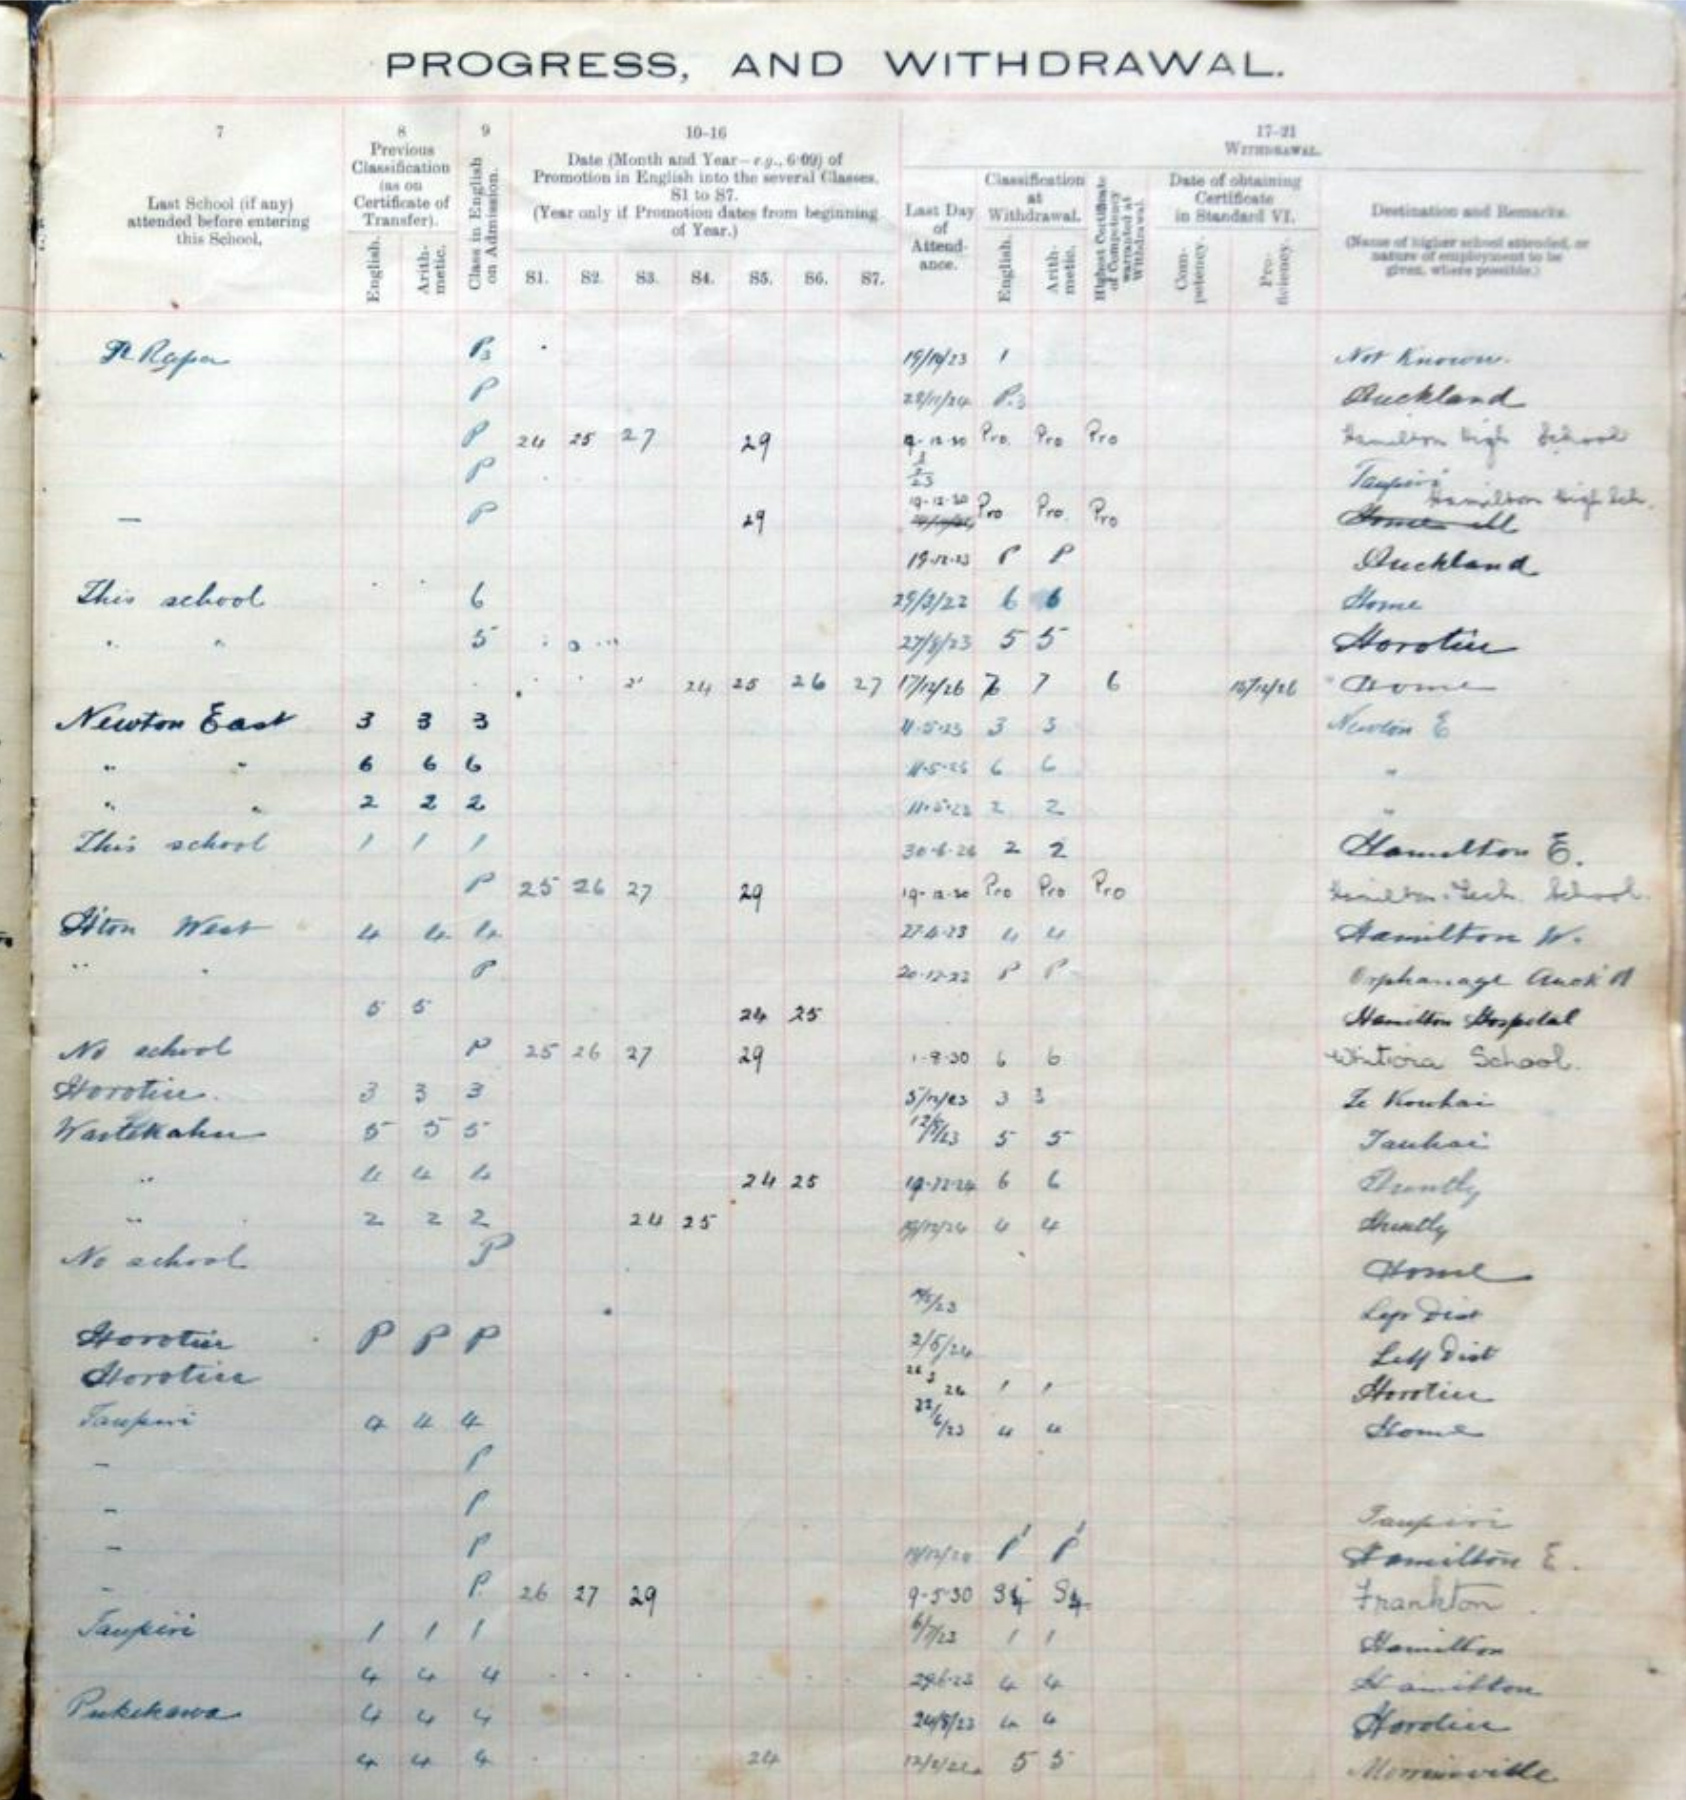 PROGRESS, AND WITHDRAWAL.
7 8 9 10-16 17-21
Last School (if any) attended before entering this School.
Previous Classification (as on Certificate of Transfer).
English. Arithmetic.
Class in English on Admission.
Date (Month and Year—e.g., 6·09) of Promotion in English into the several Classes, S1 to S7. (Year only if Promotion dates from beginning of Year.)
S1. S2. S3. S4. S5. S6. S7.
WITHDRAWAL.
Last Day of Attendance.
Classification at Withdrawal.
English. Arithmetic.
Highest Certificate of Competency warranted at Withdrawal.
Date of obtaining Certificate in Standard VI.
Competency. Proficiency.
Destination and Remarks.
(Name of higher school attended, or nature of employment to be given, where possible.)
Rapa P3 1 Not Known.
P 28/11/24 P.3 Auckland
P 24 25 27 29 9-12-30 Pro. Pro Pro Hamilton High School
P 23 Taupiri
— P 29 19-12-30 Pro Pro. Pro Hamilton High Sch.
19-12-23 P P Auckland
This school 6 29/3/22 6 6 Home
" " 5 27/8/23 5 5 Horotiu
24 25 26 27 17/12/26 7 7 6 Home
Newton East 3 3 3 11-5-23 3 3 Newton E
" " 6 6 6 6 6 "
" " 2 2 2 11-5-23 2 2 "
This school 1 1 1 2 2 Hamilton E.
P 25 26 27 29 19-12-30 Pro Pro Pro Hamilton Tech. School.
H'ton West 4 4 4 27-4-23 4 4 Hamilton W.
" " P P P Orphanage Auck'd
5 5 24 25 Hamilton Hospital
No school P 25 26 27 29 6 6 School.
Horotiu. 3 3 3 3 3 Te Kowhai
5 5 5 5 5 Tauhei
" 4 4 4 24 25 6 6 Huntly
" 2 2 2 24 25 4 4 Huntly
No school P Home
Left Dist
Horotiu P P P 2/5/24 Left Dist
Horotiu 1 1 Horotiu
Taupiri 4 4 4 22/6/23 4 4 Home
– P
– P Taupiri
– P P1 P1 Hamilton E.
– P. 26 27 29 9-5-30 S4 S4 Frankton
Taupiri 1 1 1 6/7/23 1 1 Hamilton
4 4 4 29-6-23 4 4 Hamilton
Pukekawa 4 4 4 24/8/23 4 4 Horotiu
4 4 4 24 5 5 Morrinsville